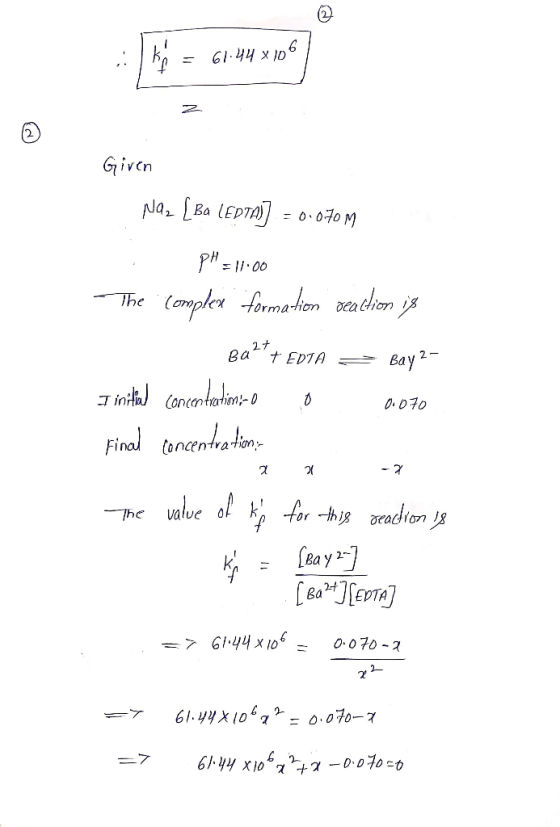 ②
∴ k'f = 61.44 × 10⁶
②
Given
Na₂ [Ba (EDTA)] = 0.070 M
pH = 11.00
The complex formation reaction is
Ba²⁺ + EDTA ⇌ Bay²⁻
Initial concentration:- 0 0 0.070
Final concentration:-
x x -x
The value of k'f for this reaction is
k'f = [Bay²⁻] / [Ba²⁺][EDTA]
=> 61.44 × 10⁶ = 0.070 - x / x²
=> 61.44 × 10⁶ x² = 0.070 - x
=> 61.44 × 10⁶ x² + x - 0.070 = 0